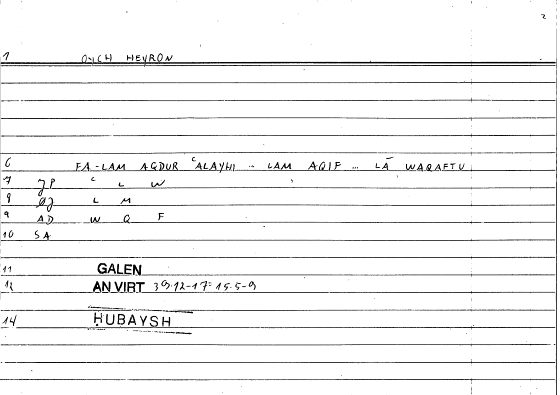 2
1 OYCH HEYRON
6 FA-LAM AQDUR ʿALAYHI .. LAM AQIF ... LĀ WAQAFTU
7 JP ʿ L W
8 ØJ L M
9 AD W Q F
10 SA
11 GALEN
12 AN VIRT 39.12-17 = 15.5-9
14 ḤUBAYSH